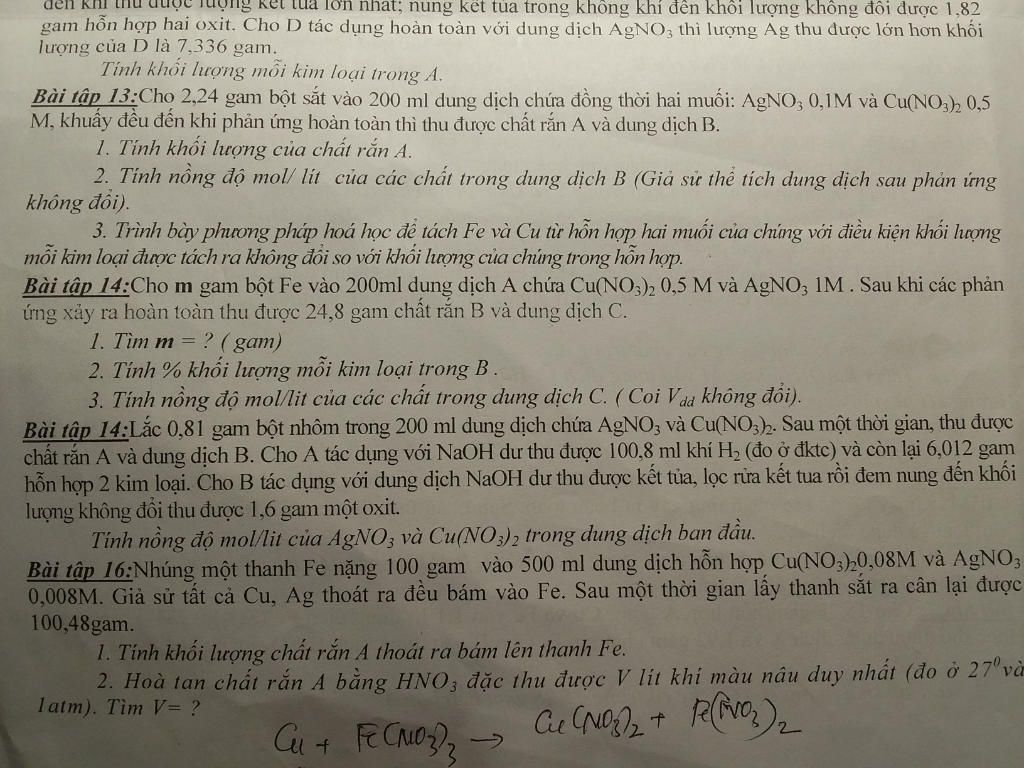 đến khi thu được lượng kết tủa lớn nhất; nung kết tủa trong không khí đến khối lượng không đổi được 1,82
gam hỗn hợp hai oxit. Cho D tác dụng hoàn toàn với dung dịch AgNO3 thì lượng Ag thu được lớn hơn khối
lượng của D là 7,336 gam.
Tính khối lượng mỗi kim loại trong A.
Bài tập 13:Cho 2,24 gam bột sắt vào 200 ml dung dịch chứa đồng thời hai muối: AgNO3 0,1M và Cu(NO3)2 0,5
M, khuấy đều đến khi phản ứng hoàn toàn thì thu được chất rắn A và dung dịch B.
1. Tính khối lượng của chất rắn A.
2. Tính nồng độ mol/ lít của các chất trong dung dịch B (Giả sử thể tích dung dịch sau phản ứng
không đổi).
3. Trình bày phương pháp hoá học để tách Fe và Cu từ hỗn hợp hai muối của chúng với điều kiện khối lượng
mỗi kim loại được tách ra không đổi so với khối lượng của chúng trong hỗn hợp.
Bài tập 14:Cho m gam bột Fe vào 200ml dung dịch A chứa Cu(NO3)2 0,5 M và AgNO3 1M . Sau khi các phản
ứng xảy ra hoàn toàn thu được 24,8 gam chất rắn B và dung dịch C.
1. Tìm m = ? ( gam)
2. Tính % khối lượng mỗi kim loại trong B .
3. Tính nồng độ mol/lit của các chất trong dung dịch C. ( Coi Vdd không đổi).
Bài tập 14:Lắc 0,81 gam bột nhôm trong 200 ml dung dịch chứa AgNO3 và Cu(NO3)2. Sau một thời gian, thu được
chất rắn A và dung dịch B. Cho A tác dụng với NaOH dư thu được 100,8 ml khí H2 (đo ở đktc) và còn lại 6,012 gam
hỗn hợp 2 kim loại. Cho B tác dụng với dung dịch NaOH dư thu được kết tủa, lọc rửa kết tua rồi đem nung đến khối
lượng không đổi thu được 1,6 gam một oxit.
Tính nồng độ mol/lit của AgNO3 và Cu(NO3)2 trong dung dịch ban đầu.
Bài tập 16:Nhúng một thanh Fe nặng 100 gam vào 500 ml dung dịch hỗn hợp Cu(NO3)20,08M và AgNO3
0,008M. Giả sử tất cả Cu, Ag thoát ra đều bám vào Fe. Sau một thời gian lấy thanh sắt ra cân lại được
100,48gam.
1. Tính khối lượng chất rắn A thoát ra bám lên thanh Fe.
2. Hoà tan chất rắn A bằng HNO3 đặc thu được V lít khí màu nâu duy nhất (đo ở 27⁰ và
1atm). Tìm V= ?
Cu + Fe(NO3)3 → Cu(NO3)2 + Fe(NO3)2